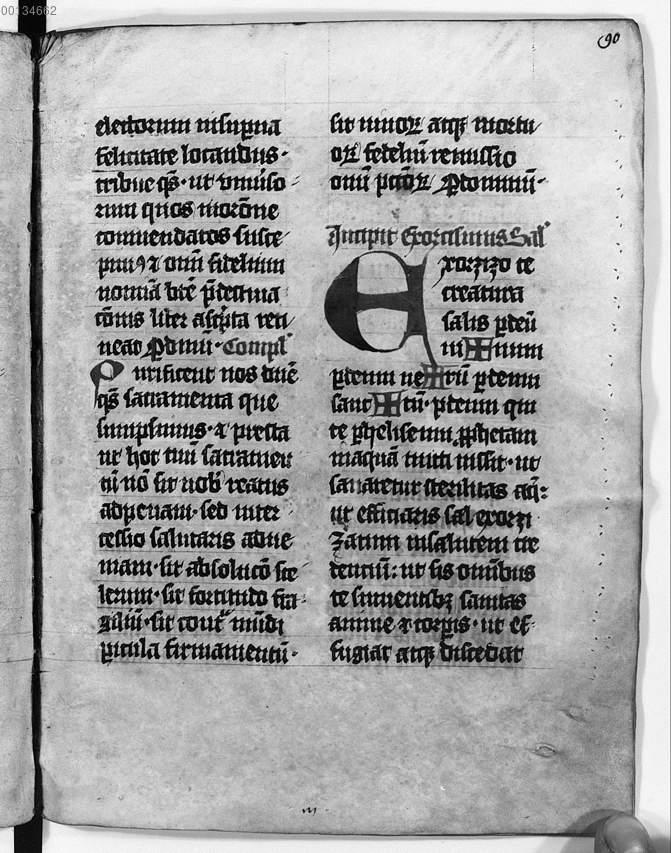 00134662
90
electorum in sup̄na
felicitate locandus·
tribue q̄s· ut vniuſo·
rum quos in or̄one
com̄endatos ſuſce
pim9 ⁊ om̄i fidelium
nomīa bt̄e p̄deſtina
tōnis liber aſc̄pta reti
neat Ꝑ dn̄m· Compl̄
Purificent nos dn̄e
q̄s ſacramenta que
ſumpſimus· ⁊ preſta
ut hoc tuū ſacramen
tū nō ſit nob̄ reatus
ad penam· ſed inter
ceſſio ſalutaris ad ue
niam· ſit ablutō ſce
lerum· ſit fortitudo fra
giliū· ſit cont̄ mūdi
ꝑicula firmamentū·
ſit viuoꝝ atqꝫ mortu
oꝝ fideliū remiſſio
om̄i pct̄oꝝ Ꝑ dominū·
Incipit Exorciſmus Sal
Exorzizo te
creatura
ſalis ꝑ deū
ui✠uum
ꝑ deum ue✠rū ꝑ deum
ſanc✠tū· ꝑ deum qui
te ꝑ heliſeum ꝓphetam
in aquā mitti iuſſit· ut
ſanaretur ſterilitas aq̄:
ut efficiaris ſal exorzi
zatum in ſalutem cre
dentiū: ut ſis om̄ibus
te ſumentibꝫ ſanitas
anime ⁊ corꝑis· ut ef
fugiat atqꝫ diſcedat